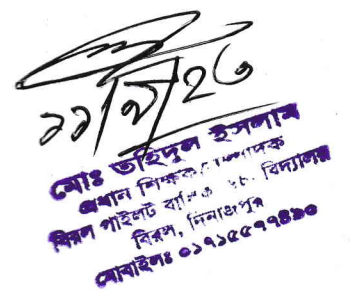 ১১/৭/২৩
মোঃ তহিদুল ইসলাম
প্রধান শিক্ষক
বিরল পাইলট বালিকা উচ্চ বিদ্যালয়
বিরল, দিনাজপুর
মোবাইলঃ ০১৭১৫৫৭৭৪৯০